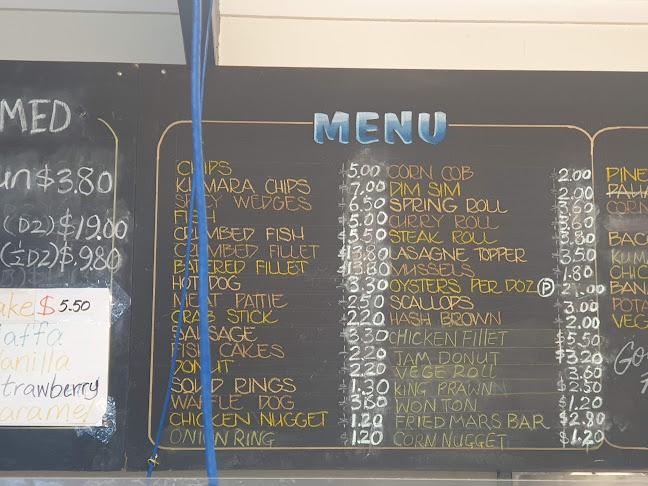 MED
un $3.80
(D2) $19.00
(½D2) $9.80
ake $5.50
affa
anilla
trawberry
aramel
MENU
CHIPS 5.00
KUMARA CHIPS 7.00
SPICY WEDGES 6.50
FISH 5.00
CRUMBED FISH 5.50
CRUMBED FILLET 13.80
BATTERED FILLET 13.80
HOT DOG 3.30
MEAT PATTIE 2.50
CRAB STICK 2.20
SAUSAGE 3.30
FISH CAKES 2.20
DONUT 2.20
SQUID RINGS 1.30
WAFFLE DOG 3.80
CHICKEN NUGGET 1.20
ONION RING 1.20
CORN COB 2.00
DIM SIM 2.00
SPRING ROLL
CURRY ROLL
STEAK ROLL 3.80
LASAGNE TOPPER 3.50
MUSSELS 1.80
OYSTERS PER DOZ P 21.00
SCALLOPS 3.00
HASH BROWN 2.00
CHICKEN FILLET $5.50
JAM DONUT $3.20
VEGE ROLL 3.60
KING PRAWN 2.50
WONTON $1.20
FRIED MARS BAR $2.80
CORN NUGGET $1.20
PINE
PAUA
CORN
BACO
KUMA
CHIC
BANA
POTA
VEG